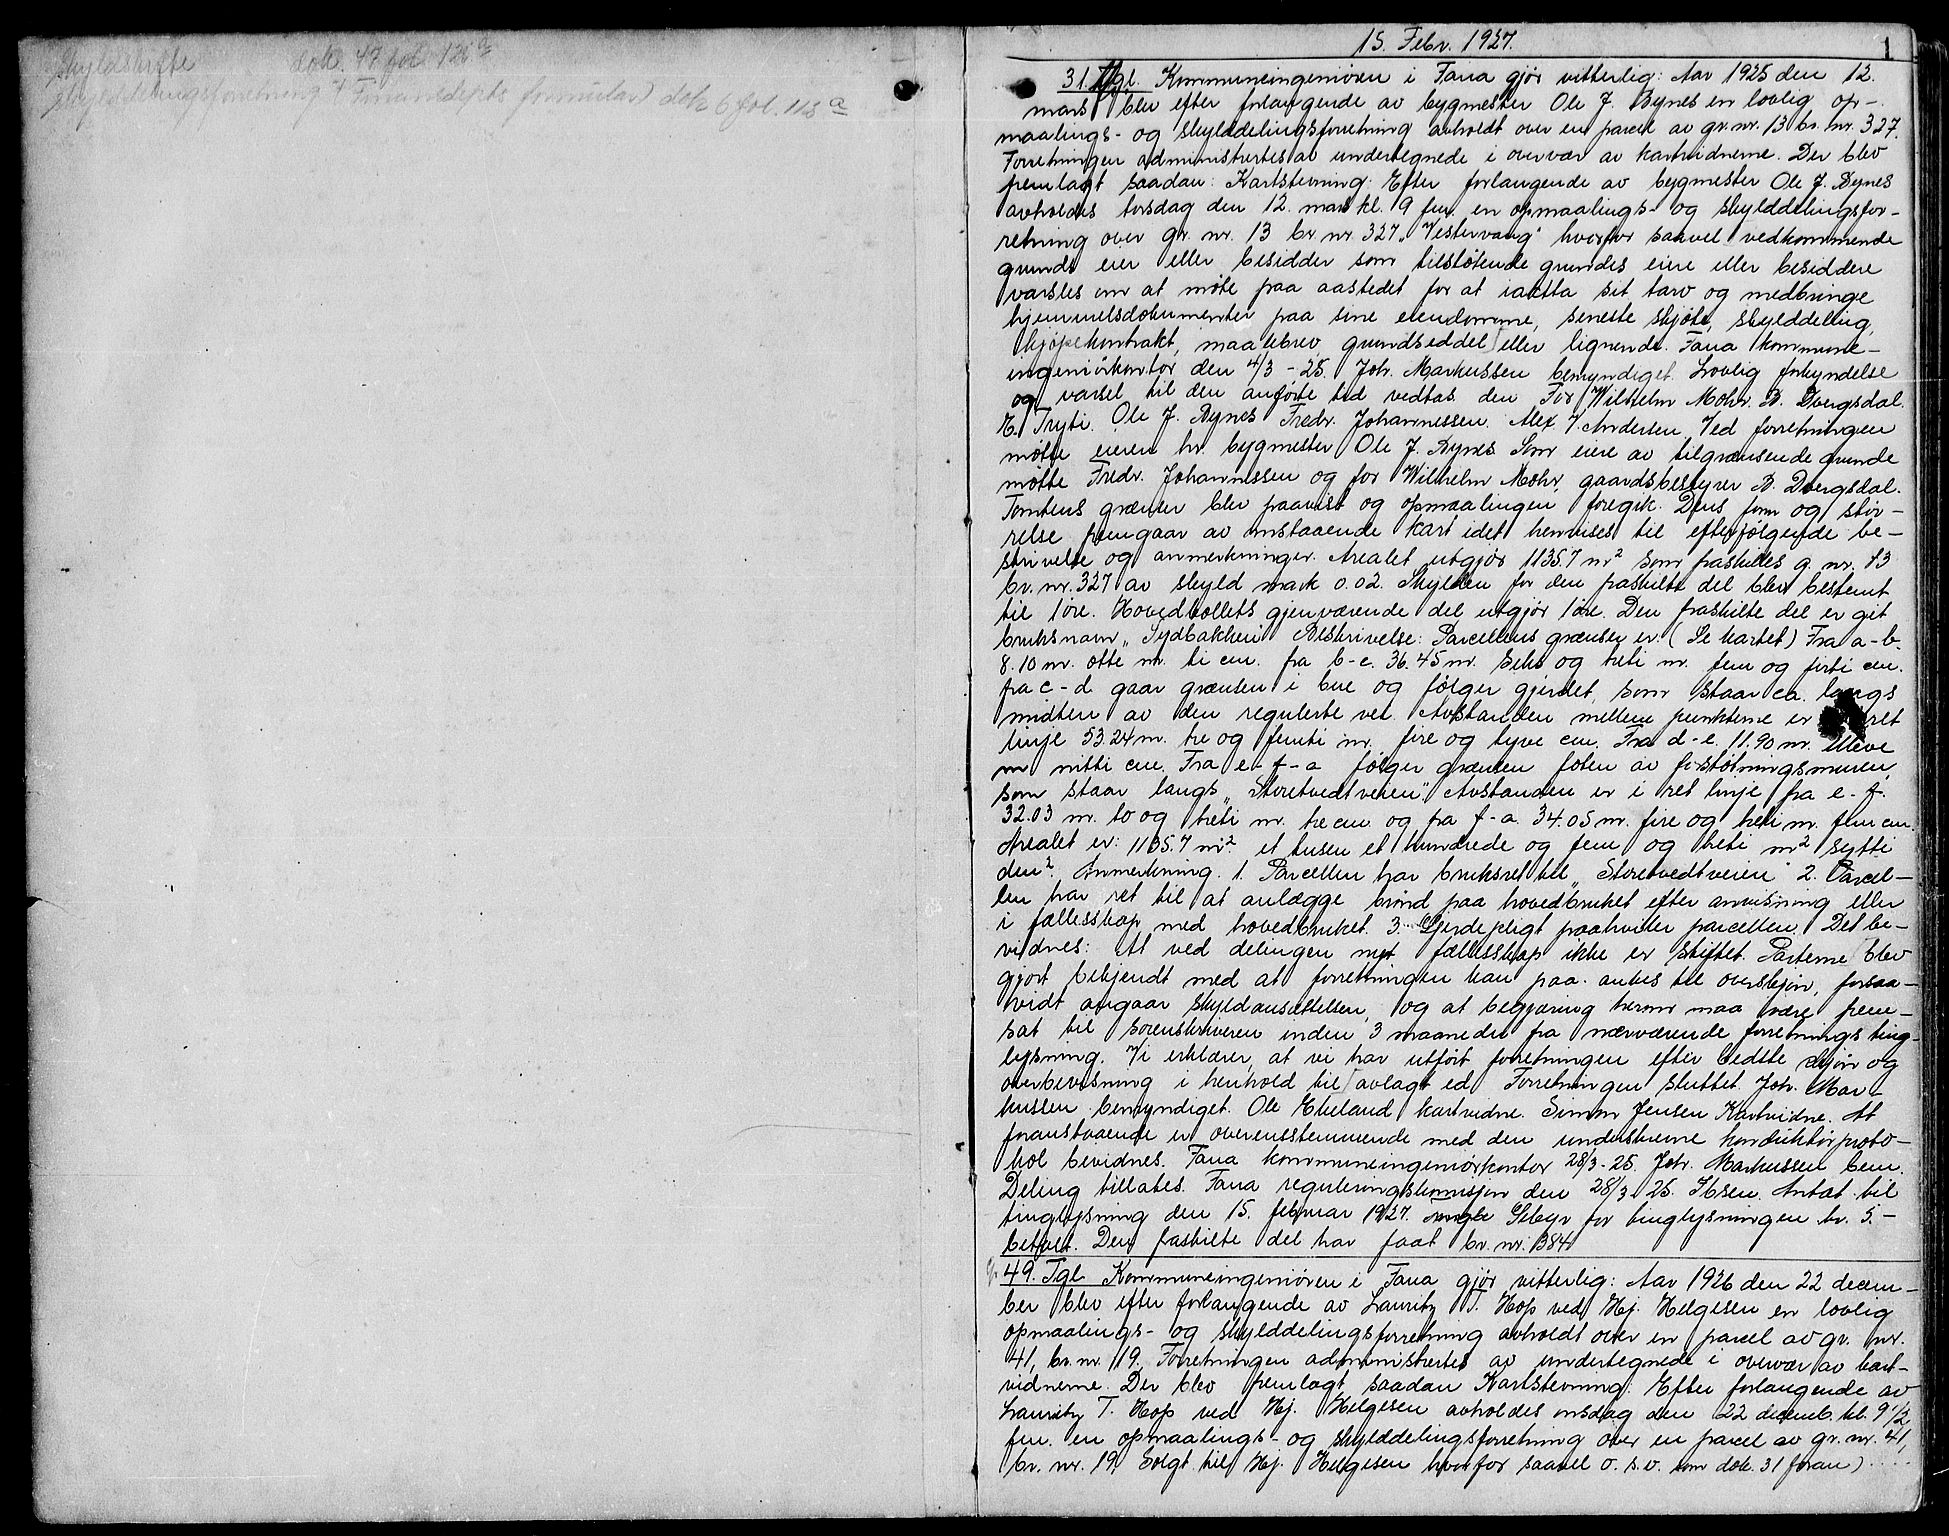 Skyldskifte dok. 47 fol. 126 a
Skylddelingsforretning formular) dok 6 fol. 113 a
15. Febr. 1927.
1
31. Tgl. Kommuneingeniøren i Fana gjør vitterlig: Aar 1925 den 12.
mars blev efter forlangende av bygmester Ole J. Bynes en lovlig op-
maalings- og skylddelingsforretning avholdt over en parcel av gr.nr. 13 br. nr. 327.
Forretningen administrertes av undertegnede i overvær av kartvidnerne. Der blev
fremlagt saadan: Kartstevning: Efter forlangende av bygmester Ole J. Bynes
avholdes torsdag den 12. mars kl. 9 fm. en opmaalings- og skylddelingsfor-
retning over gr. nr. 13 br nr. 327 „Vestervang" hvorfor saavel vedkommende
grunds eier eller besidder som tilstøtende grundes eiere eller besiddere
varsles om at møte paa aastedet for at iaktta sit tarv og medbringe
hjemmelsdokumenter paa sine eiendomme, seneste skjøte, skylddeling,
kjøpekontrakt, maalebrev grundseddel eller lignende. Fana kommune-
ingeniørkontor den 4/3 - 25. Joh. Markussen bemyndiget. Lovlig forkyndelse
og varsel til den anførte tid vedtas. den For Wilhelm Mohr. B. Dvergsdal.
E. Tryti. Ole J. Bynes Fredr. Johannessen. Alex Andersen. Ved forretningen
møtte eieren hr. bygmester Ole J. Bynes Som eiere av tilgrænsende grunde
møtte Fredr. Johannessen og for Wilhelm Mohr, gaardsbestyrer B. Dvergsdal.
Tomtens grænser blev paavist og opmaalingen foregik. Dens form og stør-
relse fremgaar av omstaaende kart idet henvises til efterfølgende be-
skrivelse og anmerkninger. Arealet utgjør 1135.7 m² som fraskilles g. nr. 13
br. nr. 327 av skyld mark 0.02. Skylden for den fraskilte del blev bestemt
til 1 øre. Hovedbollets gjenværende del utgjør 1 øre. Den fraskilte del er git
bruksnavn „Sydbakken" Beskrivelse: Parcellens grænser er. (Se kartet) Fra a-b.
8.10 m. otte m. ti cm. fra b-c. 36.45 m. seks og treti m. fem og firti cm.
fra c-d gaar grænsen i bue og følger gjerdet, som staar ca. langs
midten av den regulerte vei. Avstanden mellem punkterne er ret
linje 53.24 m. tre og femti m. fire og tyve cm. Fra d-e. 11.90 m. elleve
m nitti cm. Fra e-f-a følger grænsen foten av forstøtningsmuren,
som staar langs „Storetvedtveien". Avstanden er i ret linje fra e-f.
32.03 m. to og treti m. tre cm. og fra f-a. 34.05 m. fire og treti m. fem cm.
Arealet er: 1135.7 m². et tusen et hundrede og fem og treti m² sytti
dm². Anmerkning. 1. Parcellen har bruksret til „Storetvedtveien" 2. Parcel-
len har ret til at anlægge brønd paa hovedbruket efter anvisning eller
i fællesskap med hovedbruket. 3. Gjerdepligt paahviler parcellen. Det be-
vidnes: At ved delingen nyt fællesskap ikke er stiftet. Parterne blev
gjort bekjendt med at forretningen kan paa-ankes til overskjøn, forsaa-
vidt angaar skyldansættelsen, og at begjæring herom maa være frem-
sat til sorenskriveren inden 3 maaneder fra nærværende forretnings ting-
lysning. Vi erklærer, at vi har utført forretningen efter bedste skjøn og
overbevisning i henhold til avlagt ed Forretningen sluttet. Joh. Mar-
kussen bemyndiget. Ole Ekeland kartvidne. Simon Jensen Kartvidne. At
foranstaaende er overensstemmende med den underskrevne konduktørproto-
kol bevidnes. Fana kommuneingeniørkontor 28/3-25. Joh. Markussen bem.
Deling tillates. Fana reguleringskomisjon den 28/3-25. Ibsen. Antat til
tinglysning den 15. februar 1927. Gebyr for tinglysningen kr. 5.-
betalt. Den fraskilte del har faat br. nr. 384
49. Tgl. Kommuneingeniøren i Fana gjør vitterlig: Aar 1926 den 22 decem-
ber blev efter forlangende av Lauritz T. Hop ved Hj. Helgesen en lovlig
opmaalings- og skylddelingsforretning avholdt over en parcel av gr. nr.
41, br. nr. 19. Forretningen administrertes av undertegnede i overvær av kart-
vidnerne. Der blev fremlagt saadan Kartstevning: Efter forlangende av
Lauritz T. Hop ved Hj. Helgesen avholdes onsdag den 22 decemb. kl. 9 1/2
fm. en opmaalings- og skylddelingsforretning over en parcel av gr. nr. 41,
br. nr. 19. Solgt til Hj. Helgesen hvorfor saavel o. s. v. som dok. 31 foran)....